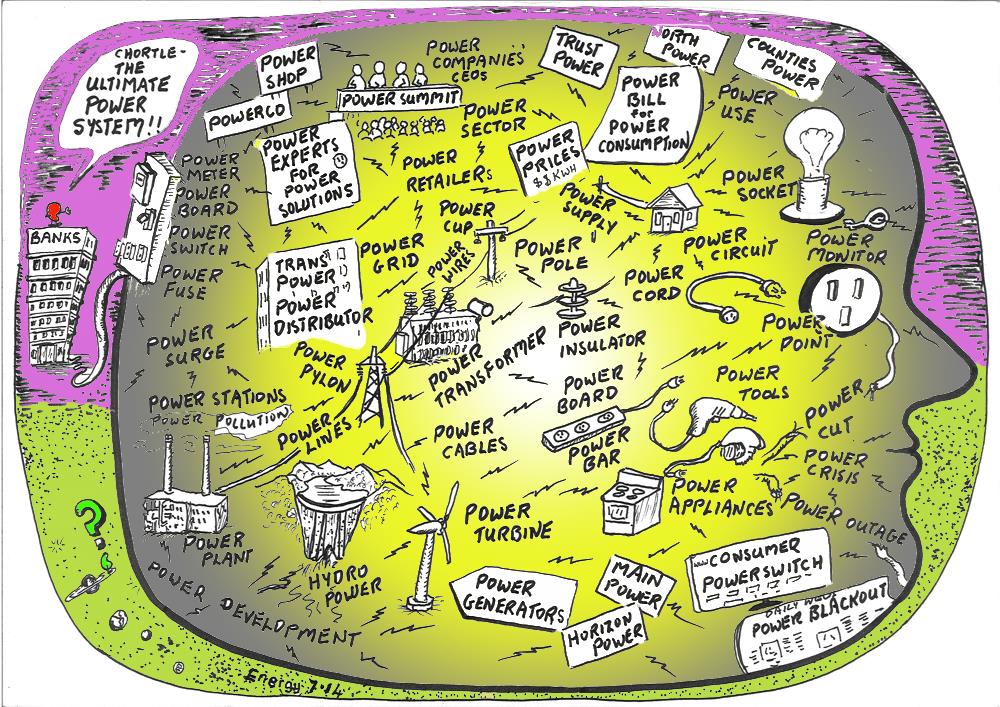 CHORTLE-
THE
ULTIMATE
POWER
SYSTEM!!
BANKS
POWER
SHOP
POWERCO
POWER
COMPANIES'
CEOs
POWER SUMMIT
POWER
SECTOR
TRUST
POWER
NORTH
POWER
COUNTIES
POWER
POWER
BILL
for
POWER
CONSUMPTION
POWER
USE
POWER
METER
POWER
BOARD
POWER
SWITCH
POWER
FUSE
POWER
EXPERTS
FOR
POWER
SOLUTIONS
POWER
RETAILERS
POWER
PRICES
$$ KWH
POWER
SUPPLY
POWER
SOCKET
POWER
MONITOR
POWER
CUP
POWER
GRID
POWER
WIRES
POWER
POLE
POWER
CIRCUIT
POWER
CORD
TRANS
POWER
POWER
DISTRIBUTOR
POWER
POINT
POWER
SURGE
POWER
PYLON
POWER
TRANSFORMER
POWER
INSULATOR
POWER STATIONS
POWER POLLUTION
POWER
LINES
POWER
CABLES
POWER
BOARD
POWER
BAR
POWER
TOOLS
POWER
CUT
POWER
CRISIS
POWER
APPLIANCES
POWER OUTAGE
POWER
PLANT
HYDRO
POWER
POWER
TURBINE
POWER DEVELOPMENT
POWER
GENERATORS
MAIN
POWER
HORIZON
POWER
www CONSUMER
POWERSWITCH
DAILY NEWS
POWER BLACKOUT
Energy 7·14